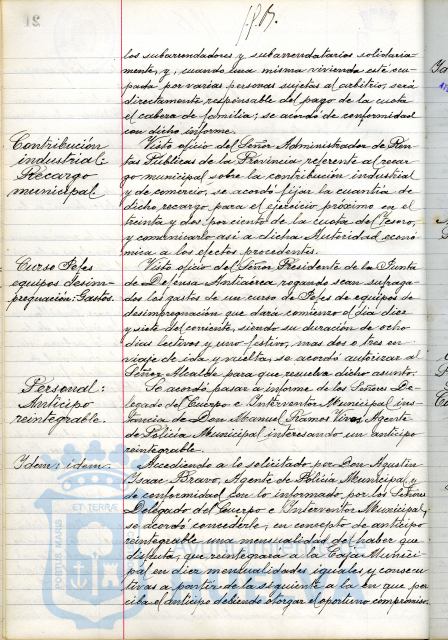 los subarrendadores y subarrendatarios solidaria-
mente, y, cuando una misma vivienda esté ocu-
pada por varias personas sujetas al arbitrio, será
directamente responsable del pago de la cuota
el cabeza de familia; se acordó de conformidad
con dicho informe.
Contribución
industrial:
Recargo
municipal
Visto oficio del Señor Administrador de Ren-
tas Públicas de la Provincia, referente al recar-
go municipal sobre la contribución industrial
y de comercio, se acordó fijar la cuantía de
dicho recargo para el ejercicio próximo en el
treinta y dos por ciento de la cuota del Tesoro,
y comunicarlo así a dicha Autoridad econó-
mica a los efectos procedentes.
Curso Jefes
equipos desim-
pregnación: Gastos.
Visto oficio del Señor Presidente de la Junta
de Defensa Antiaérea, rogando sean sufraga-
dos los gastos de un curso de Jefes de equipos de
desimpregnación que dará comienzo el día diez
y siete del corriente, siendo su duración de ocho
días lectivos y uno festivo, mas dos o tres en
viaje de ida y vuelta, se acordó autorizar al
Señor Alcalde para que resuelva dicho asunto.
Personal:
Anticipo
reintegrable.
Se acordó pasar a informe de los Señores De-
legado del Cuerpo e Interventor Municipal ins-
tancia de Don Manuel Ramos Vives Agente
de Policía Municipal interesando un anticipo
reintegrable.
Idem: idem.
Accediendo a lo solicitado por Don Agustín
Isaac Bravo, Agente de Policía Municipal y
de conformidad con lo informado por los Señores
Delegado del Cuerpo e Interventor Municipal,
se acordó concederle, en concepto de anticipo
reintegrable una mensualidad del haber que
disfruta, que reintegrará a la Caja Munici-
pal en diez mensualidades iguales y consecu-
tivas a partir de la siguiente a la en que per-
ciba el anticipo debiendo otorgar el oportuno compromiso.
PORTUS MARIS
ET TERRAE